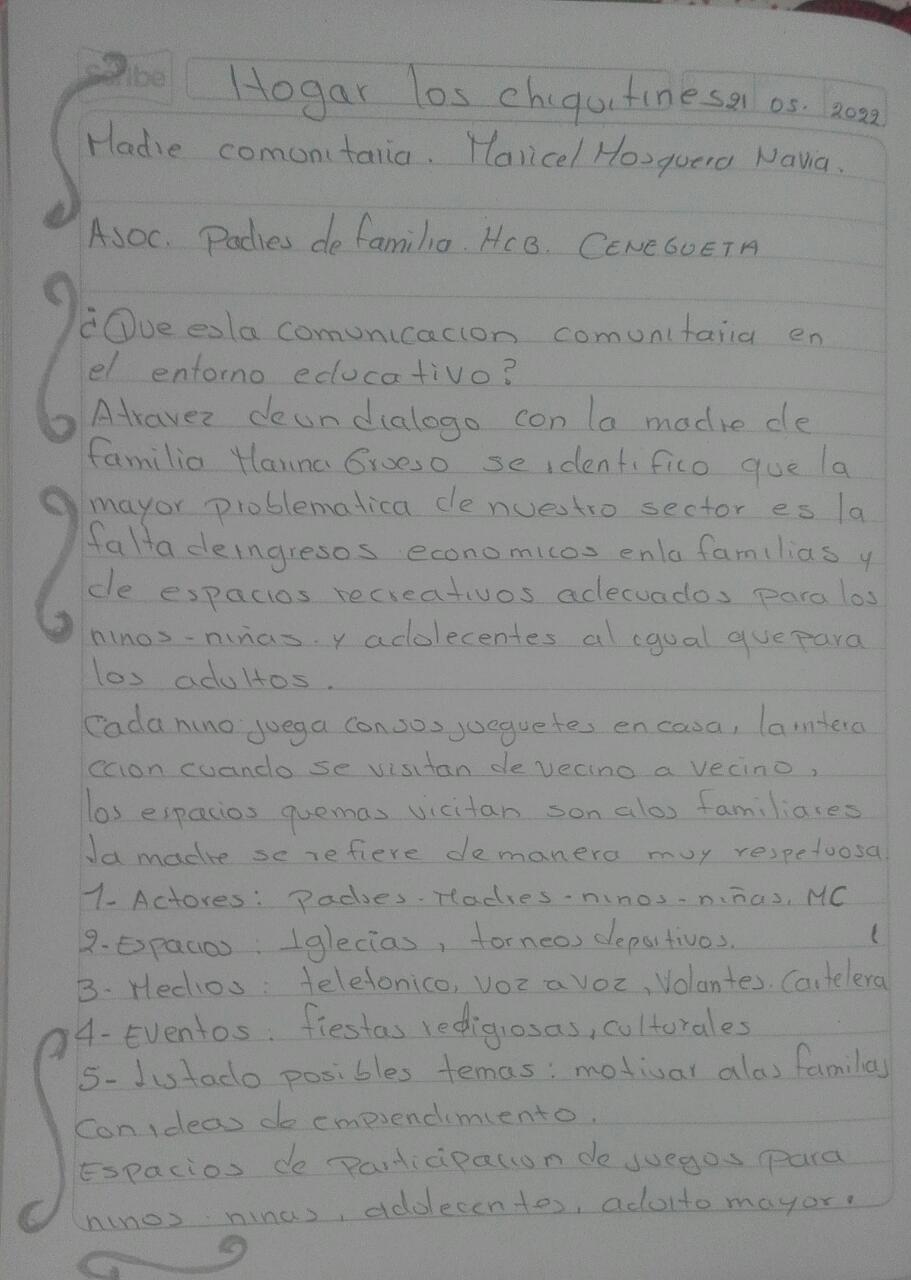 Scribe
Hogar los chiquitines 21 05. 2022
Madre comunitaria. Maricel Mosquera Navia.
Asoc. Padres de familia. HCB. CENEGUETA
¿Que esla comunicacion comunitaria en
el entorno educativo?
Atravez deun dialogo con la madre de
familia Hanna Grueso se identifico que la
mayor problematica de nuestro sector es la
falta deingresos economicos enla familias y
de espacios recreativos adecuados para los
ninos-niñas. y adolecentes al igual quepara
los adultos.
Cada nino juega consos jueguetes en casa, la intera
ccion cuando se visitan de vecino a vecino,
los espacios quemas vicitan son alos familiares
la madre se refiere demanera muy respetuosa.
1- Actores: Padres. Madres-ninos-niñas. MC
2-Espacios: Iglecias, torneos deportivos.
3- Medios: telefonico, voz a voz, Volantes. Cartelera
4- Eventos. fiestas redigiosas, culturales
5- listado posibles temas: motivar alas familias
con ideas de emprendimiento.
Espacios de Participacion de juegos para
ninos. ninas, adolecentes, adulto mayor.